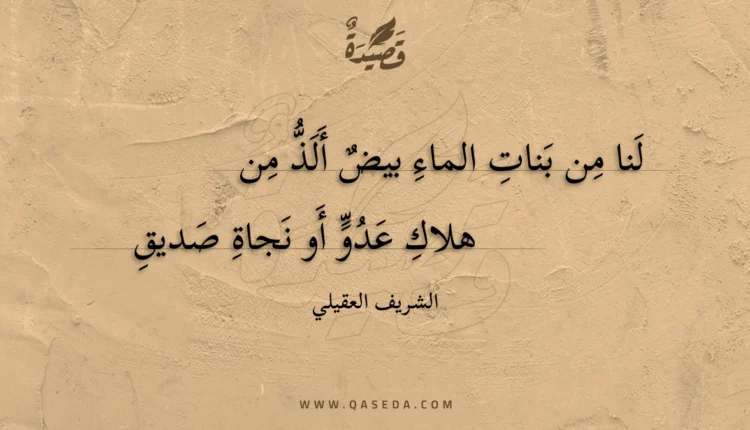 قَصِيدَةٌ
لَنا مِن بَناتِ الماءِ بيضٌ أَلَذُّ مِن
هلاكِ عَدُوٍّ أَو نَجاةِ صَديقِ
الشريف العقيلي
WWW.QASEDA.COM